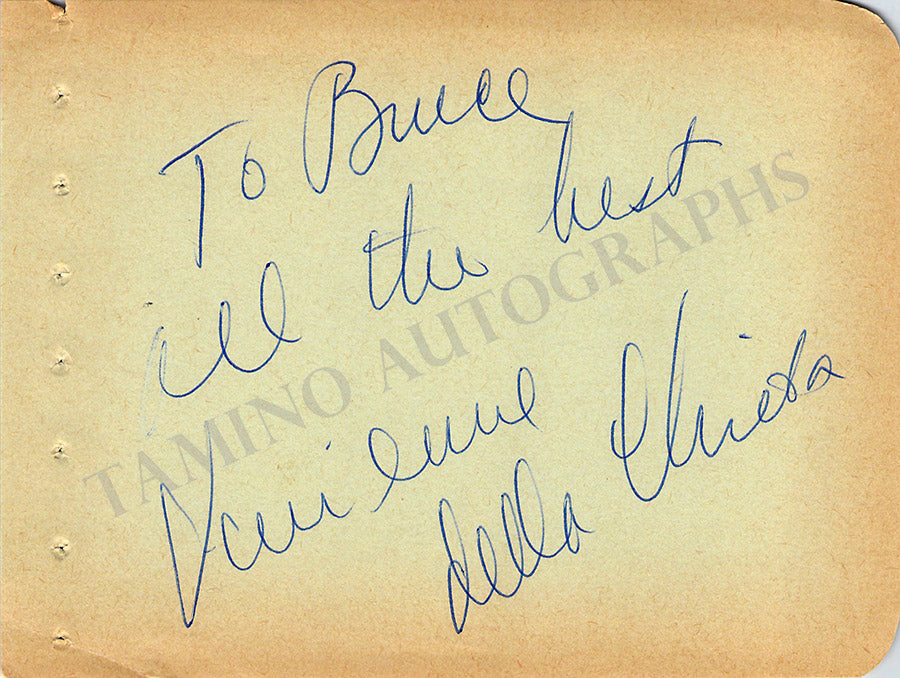 To Bruce
all the best
Vivienne
della Chiesa
TAMINO AUTOGRAPHS